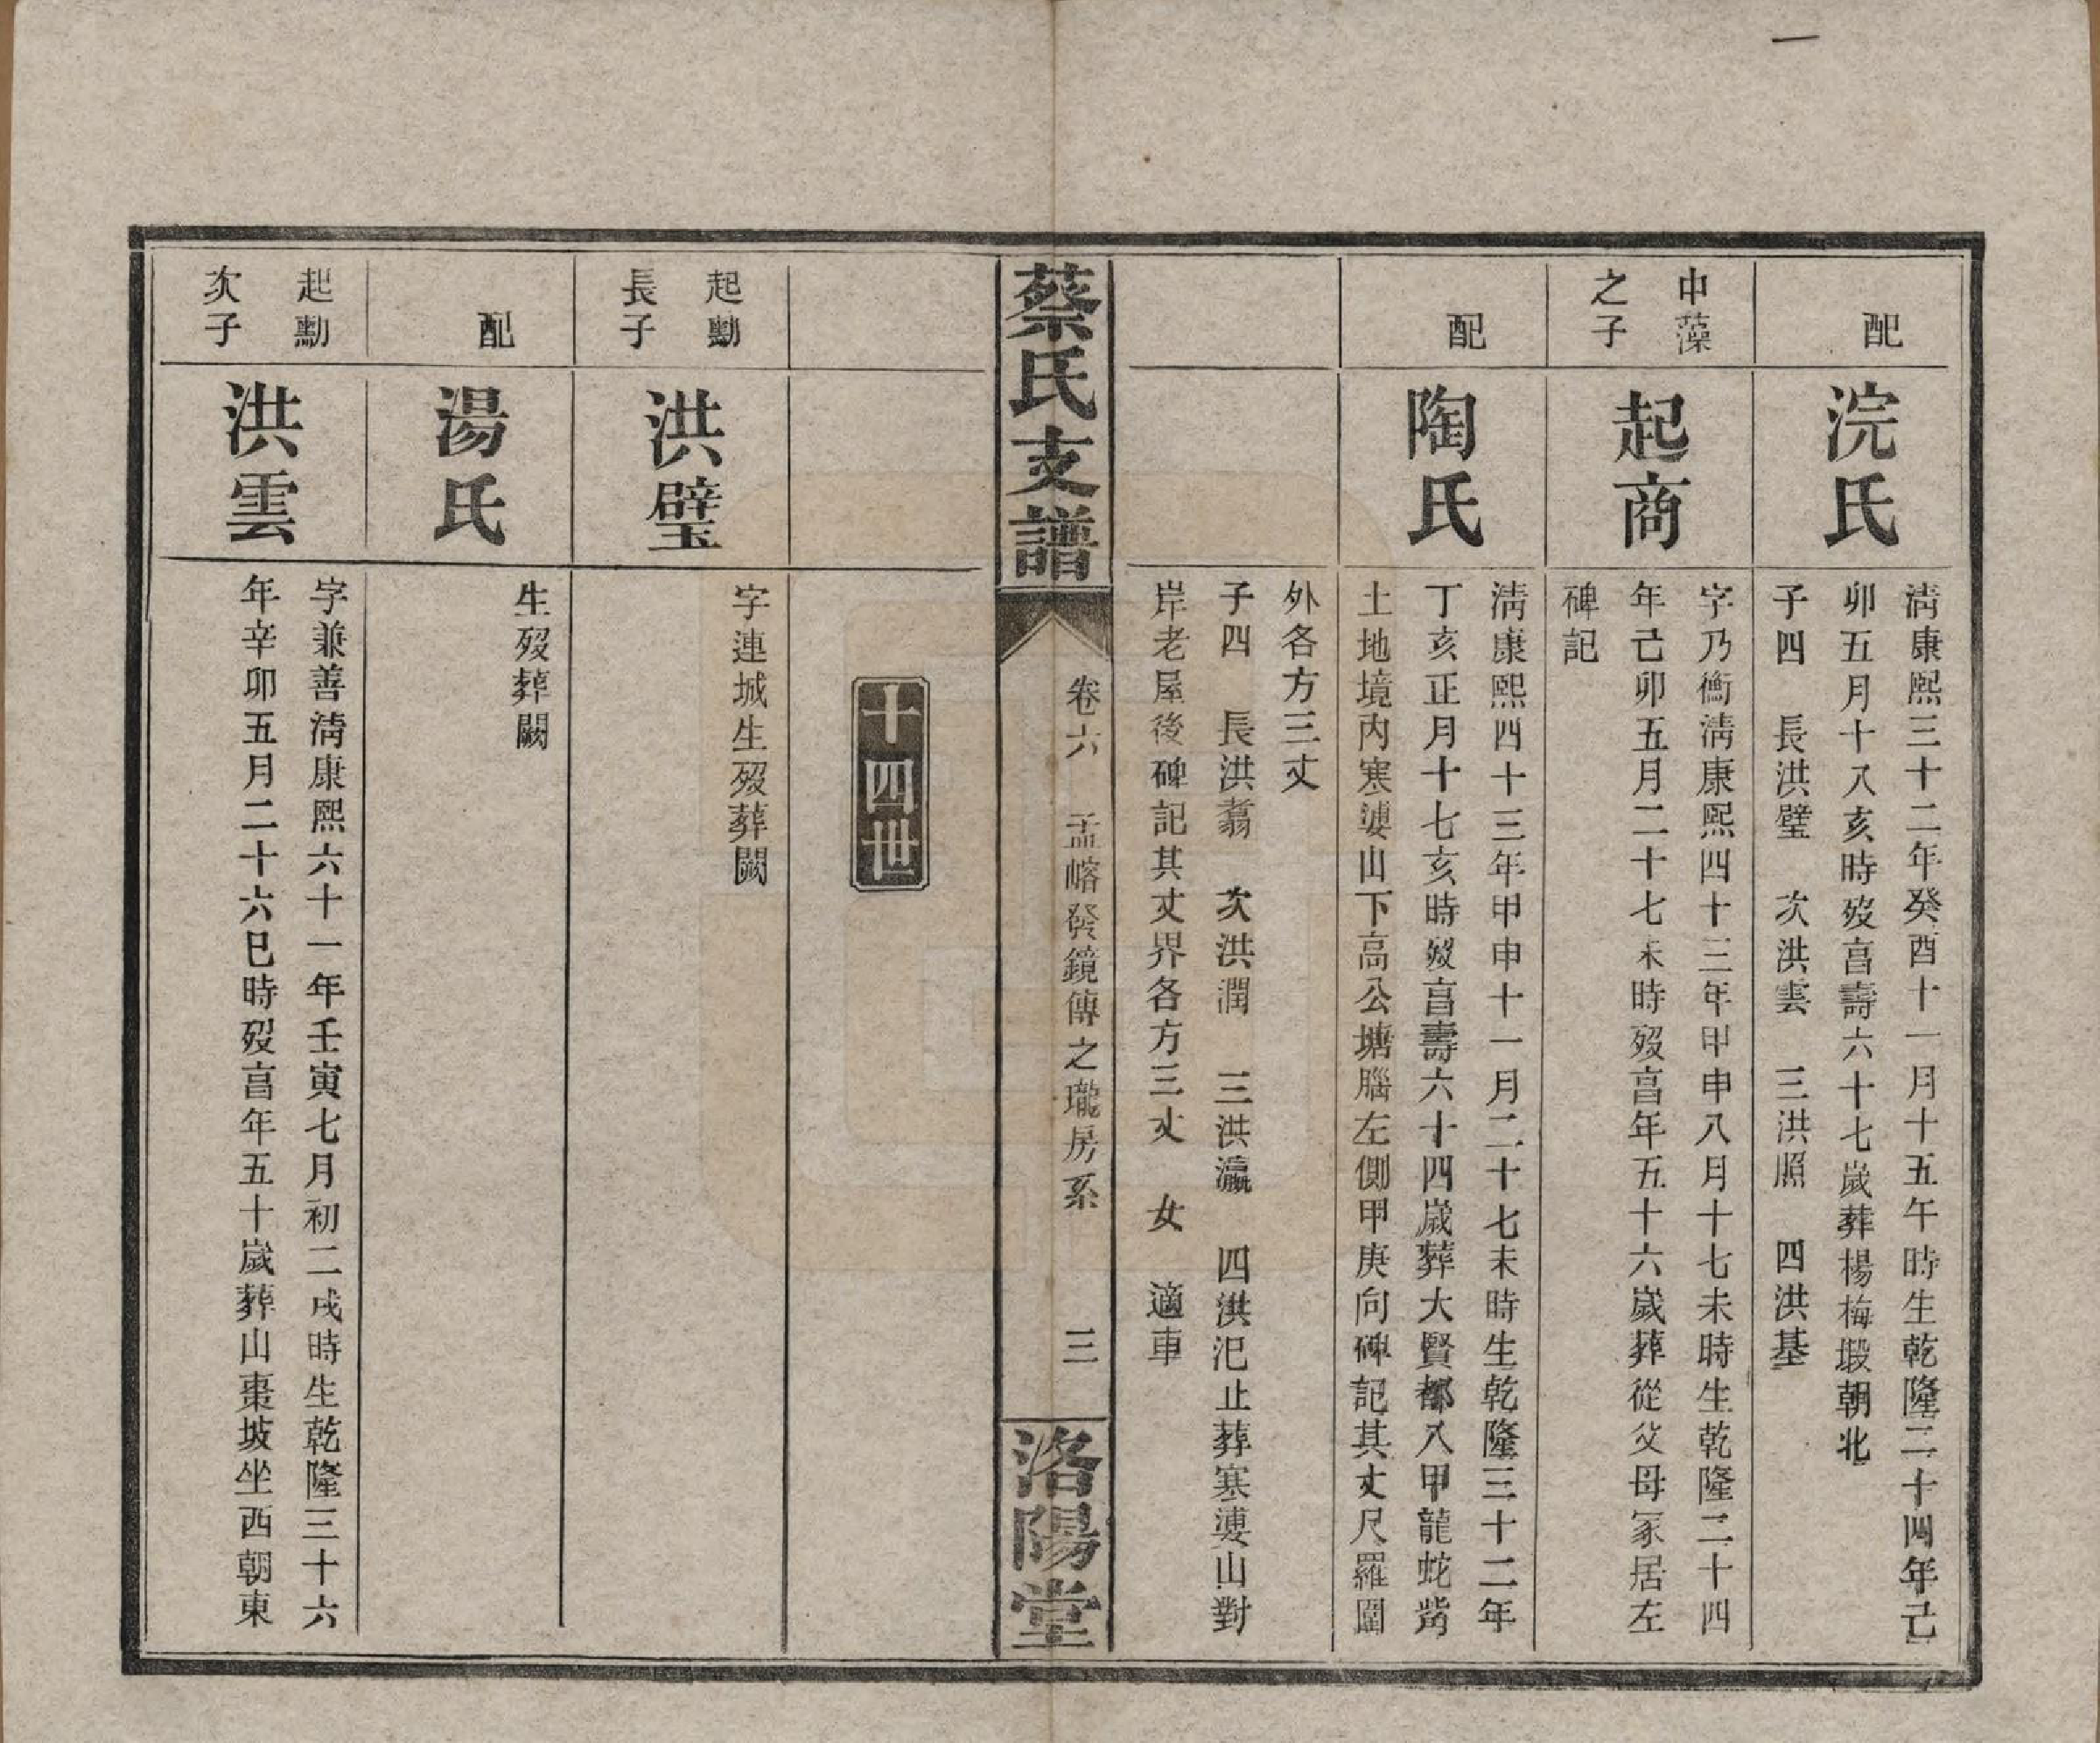 一
配
浣氏
淸康熙三十二年癸酉十一月十五午時生乾隆二十四年己
卯五月十八亥時歿亯壽六十七歲葬楊梅塅朝北
子四　長洪璧　次洪雲　三洪照　四洪基
中藻
之子
起商
字乃衡淸康熙四十三年甲申八月十七未時生乾隆二十四
年己卯五月二十七未時歿亯年五十六歲葬從父母冢居左
碑記
配
陶氏
淸康熙四十三年甲申十一月二十七未時生乾隆三十二年
丁亥正月十七亥時歿亯壽六十四歲葬大賢都八甲龍蛇嘴
土地境内寒婆山下高公塘腦左側甲庚向碑記其丈尺羅圍
外各方三丈
子四　長洪翥　次洪潤　三洪瀛　四洪汜止葬寒婆山對
岸老屋後碑記其丈界各方三丈　女　適車
蔡氏支譜
卷六　孟嵱發鏡傳之瓏房系　三
洛陽堂
十四世
起勳
長子
洪璧
字連城生歿葬闕
配
湯氏
生歿葬闕
起勳
次子
洪雲
字兼善淸康熙六十一年壬寅七月初二戌時生乾隆三十六
年辛卯五月二十六巳時歿亯年五十歲葬山棗坡坐西朝東